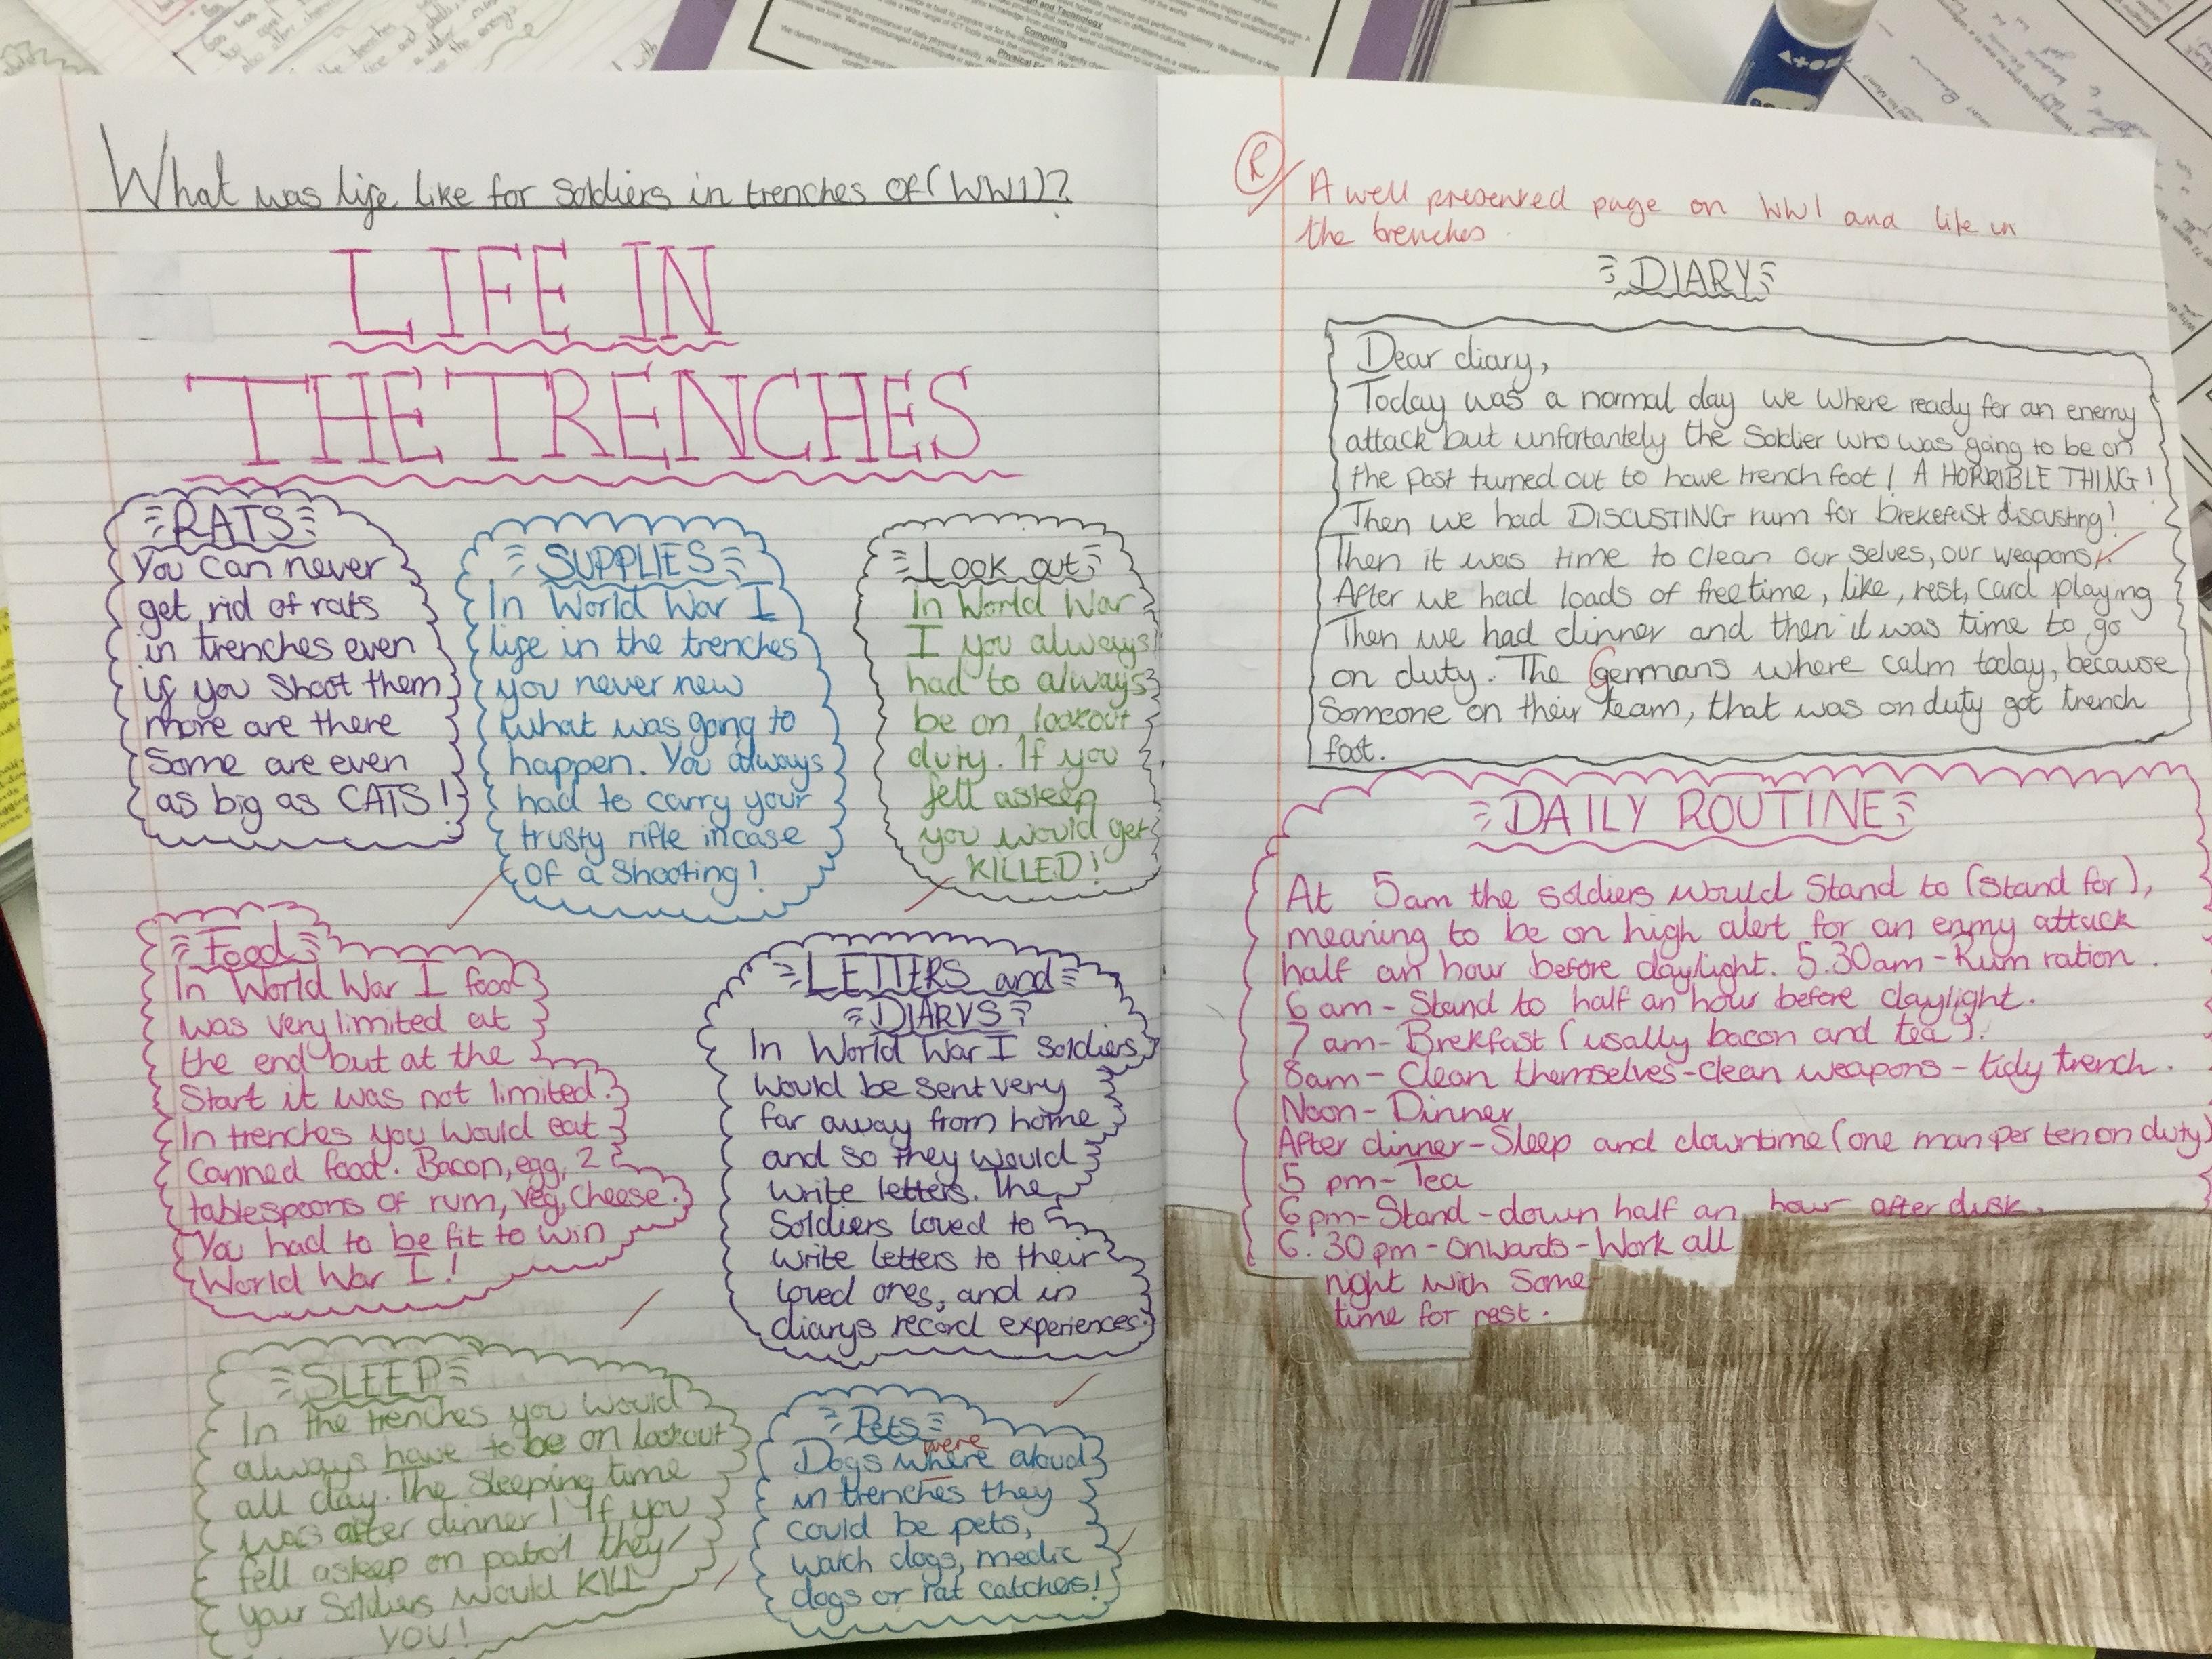 What was life like for soldiers in trenches of (WW1)?
LIFE IN
THE TRENCHES
RATS
You can never
get rid of rats
in trenches even
if you shoot them
more are there
Some are even
as big as CATS!
SUPPLIES
In World War I
life in the trenches
you never new
what was going to
happen. You always
had to carry your
trusty rifle incase
of a shooting!
Look out
In World War
I you always
had to always
be on lookout
duty. If you
fell asleep
you would get
KILLED!
Food
In World War I food
was very limited at
the end but at the
start it was not limited.
In trenches you would eat
canned food. Bacon, egg, 2
tablespoons of rum, veg, cheese.
You had to be fit to win
World War I!
LETTERS and
DIARYS
In World War I soldiers
would be sent very
far away from home
and so they would
write letters. The
Soldiers loved to
write letters to their
loved ones, and in
diarys record experiences.
SLEEP
In the trenches you would
always have to be on lookout
all day. The sleeping time
was after dinner! If you
fell asleep on patrol they
your Soldiers would KILL
YOU!
Pets
were
Dogs where aloud
in trenches they
could be pets,
watch dogs, medic
dogs or rat catchers!
R
A well presented page on WW1 and life in
the trenches.
DIARY
Dear diary,
Today was a normal day we where ready for an enemy
attack but unfortantely the Soldier who was going to be on
the post turned out to have trench foot! A HORRIBLE THING!
Then we had DISCUSTING rum for brekefast discusting!
Then it was time to clean our selves, our weapons.
After we had loads of free time, like, rest, card playing
Then we had dinner and then it was time to go
on duty. The Germans where calm today, because
Someone on their team, that was on duty got trench
foot.
DAILY ROUTINE
At 5am the soldiers would Stand to (stand for),
meaning to be on high alert for an enmy attack
half an hour before daylight. 5.30am - Rum ration.
6 am - Stand to half an hour before daylight.
7 am - Brekfast (usally bacon and tea).
8am - Clean themselves - clean weapons - tidy trench.
Noon - Dinner
After dinner - Sleep and downtime (one man per ten on duty)
5 pm - Tea
6pm - Stand - down half an hour after dusk.
6.30pm - onwards - Work all
night with some
time for rest.
Computing